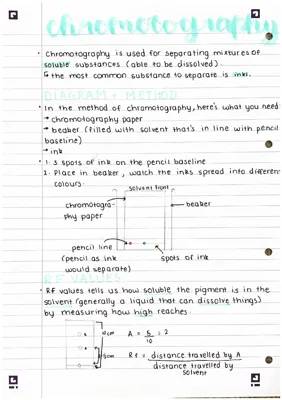 chromotography
· Chromotography is used for separating mixtures of
soluble substances (able to be dissolved).
↳ the most common substance to separate is inks.
DIAGRAM + METHOD
· In the method of chromotography, here's what you need
→ chromotography paper
→ beaker (filled with solvent that's in line with pencil
baseline)
→ ink
· 1. 3 spots of ink on the pencil baseline
2. Place in beaker, watch the inks spread into different
colours.
solvent front
chromotogra-
phy paper
beaker
pencil line
(pencil as ink
would separate)
spots of ink
RF VALUES
· RF values tells us how soluble the pigment is in the
solvent (generally a liquid that can dissolve things)
by measuring how high reaches.
10cm
A = 5/10 = 2
5cm
Rf = distance travelled by A
distance travelled by
solvent